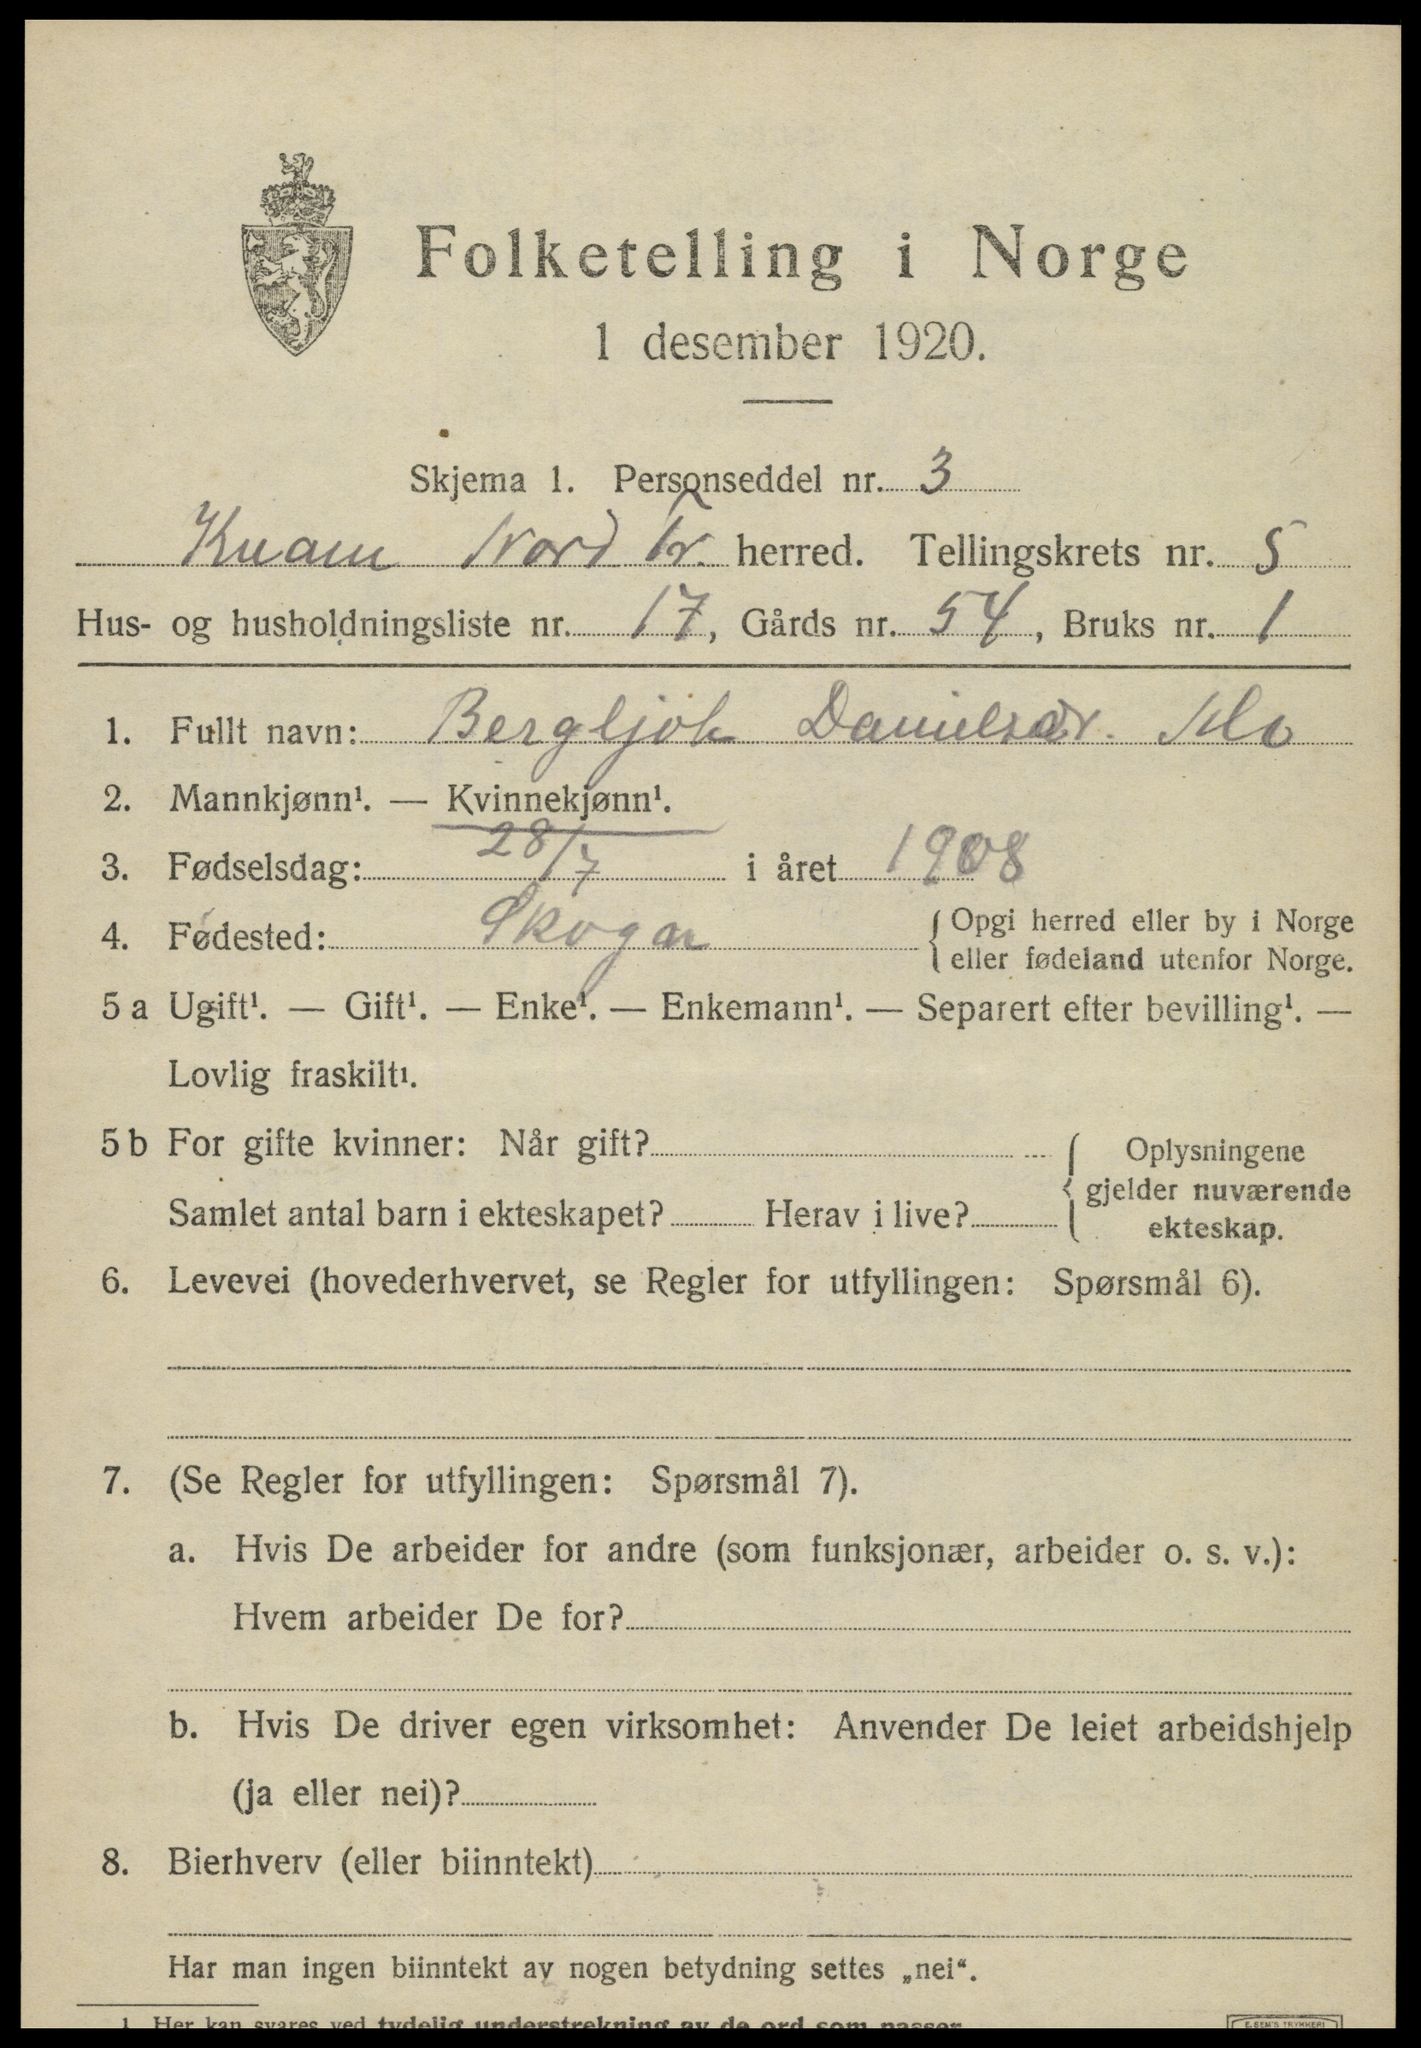 Folketelling i Norge
1 desember 1920.
Skjema 1. Personseddel nr. 3
Kvam Nord Tr. herred. Tellingskrets nr. 5
Hus- og husholdningsliste nr. 17, Gårds nr. 54, Bruks nr. 1
1. Fullt navn: Bergljot Danielsdr.
2. Mannkjønn¹. — Kvinnekjønn¹.
3. Fødselsdag: 28/7 i året 1908
4. Fødested: Skogn { Opgi herred eller by i Norge
eller fødeland utenfor Norge.
5 a Ugift¹. — Gift¹. — Enke¹. — Enkemann¹. — Separert efter bevilling¹. —
Lovlig fraskilt¹.
5 b For gifte kvinner: Når gift? { Oplysningene
gjelder nuværende
Samlet antal barn i ekteskapet? Herav i live?
ekteskap.
6. Levevei (hovederhvervet, se Regler for utfyllingen: Spørsmål 6).
7. (Se Regler for utfyllingen: Spørsmål 7).
a. Hvis De arbeider for andre (som funksjonær, arbeider o. s. v.):
Hvem arbeider De for?
b. Hvis De driver egen virksomhet: Anvender De leiet arbeidshjelp
(ja eller nei)?
8. Bierhverv (eller biinntekt)
Har man ingen biinntekt av nogen betydning settes „nei“.
1 Her kan svares ved tydelig understrekning av de ord som passer.
E. SEM'S TRYKKERI